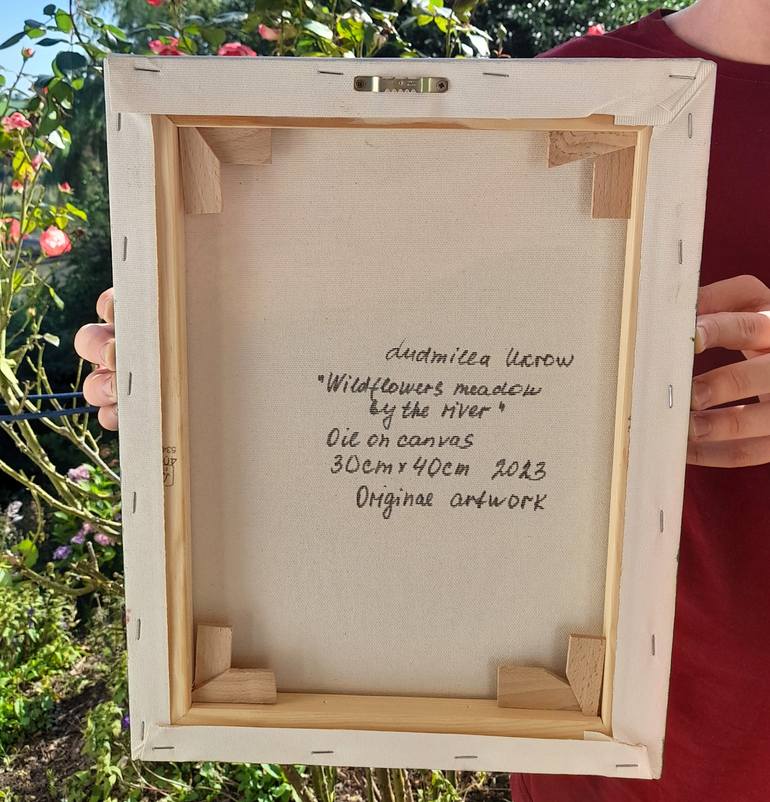 Ludmilla Ucrow
"Wildflowers meadow
by the river"
Oil on canvas
30cm x 40cm 2023
Original artwork
40
534